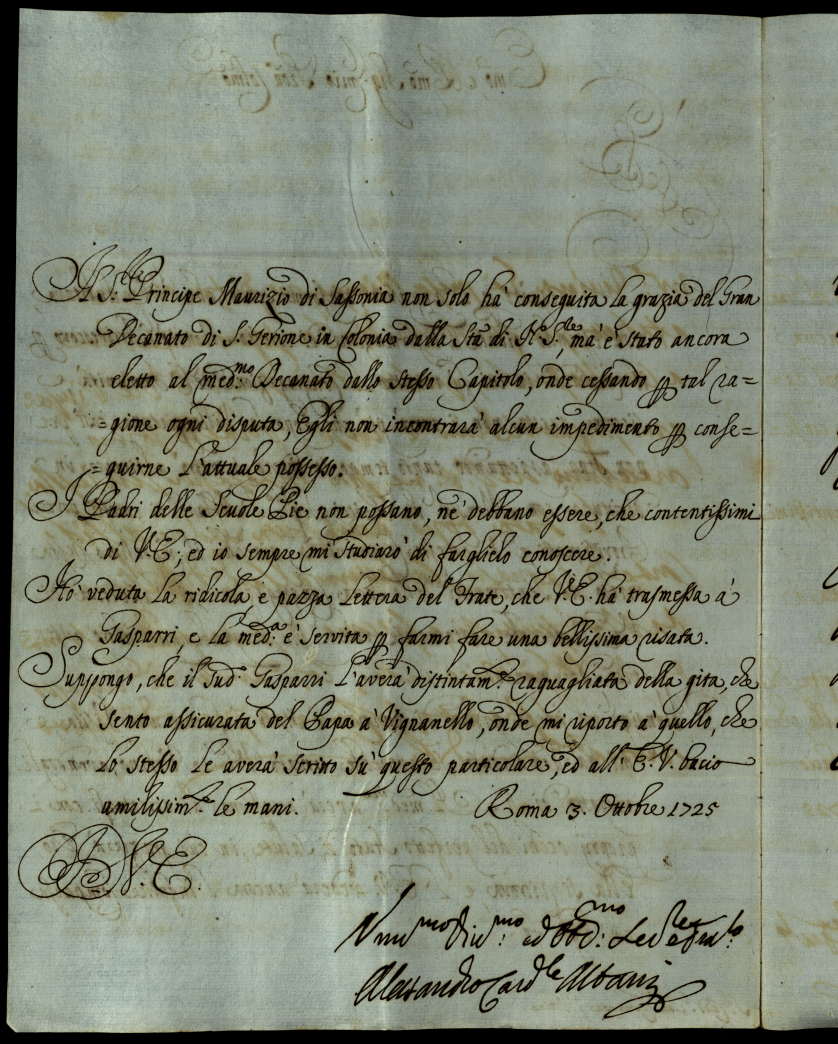 Il S.re Principe Maurizio di Sassonia non solo hà conseguita la grazia del Gran
Decanato di S. Gerione in Colonia dalla Stà di N.ro S.re, mà è stato ancora
eletto al med.mo Decanato dallo stesso Capitolo, onde cessando p tal ra=
=gione ogni disputa, Egli non incontrarà alcun impedimento p conse=
=guirne l'attuale possesso.
I Padri delle Scuole Pie non possano, nè debbano essere, che contentissimi
di V.E.; ed io sempre mi studiarò di farglielo conoscere.
Hò veduta la ridicola, e pazza lettera del Frate, che V.E. hà trasmessa à
Gasparri, e la med.a è servita p farmi fare una bellissima risata.
Suppongo, che il sud.o Gasparri l'averà distintam.te raguagliata della gita, che
sento assicurata del Papa à Vignanello, onde mi riporto à quello, che
lo stesso le averà scritto sù questo particolare, ed all' E.V. bacio
umilissim.te le mani. Roma 3. Ottobre 1725
D V.E.
Um.mo Div.mo ed Obb.mo Ser.re
Alessandro Card.le Albani